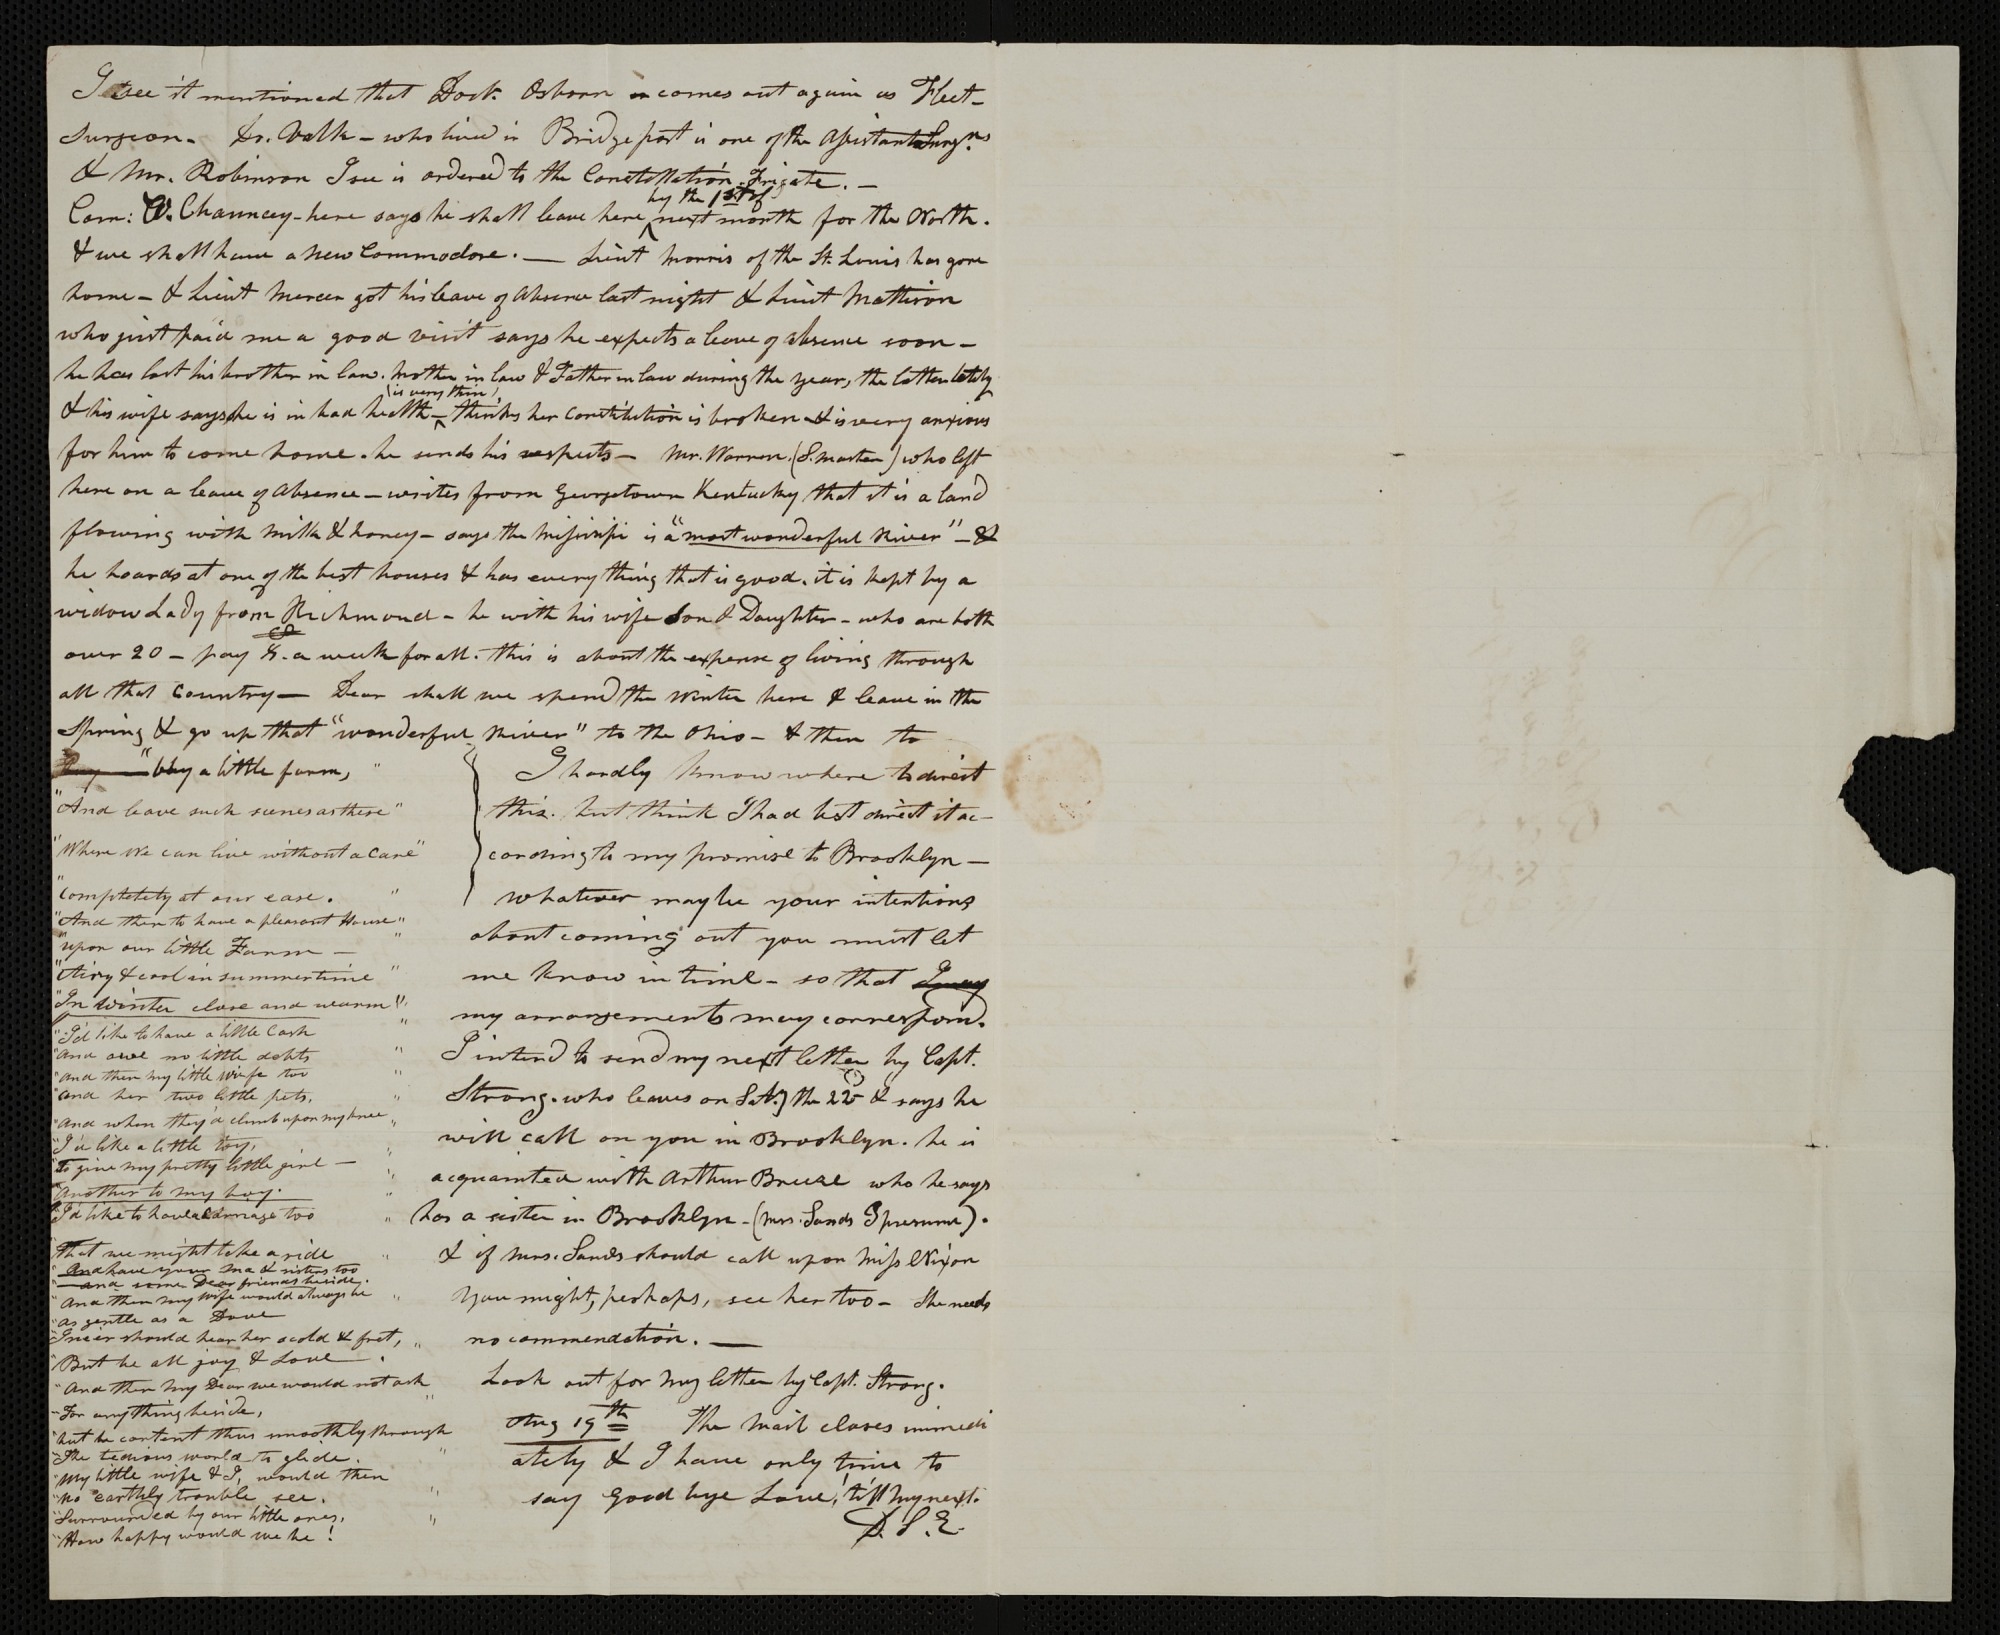 I see it mentioned that Doct. Osborn comes out again as Fleet-
Surgeon. Dr. Valk - who lived in Bridgeport is one of the Assistant Surgns
& Mr. Robinson I see is ordered to the Constellation Frigate. —
Com: W. Chauncey - here says he shall leave here by the 1st of next month for the North.
& we shall have a new Commodore. — Lieut Morris of the St. Louis has gone
home - & Lieut Mercer got his leave of absence last night & Lieut Mattison
who just paid me a good visit says he expects a leave of absence soon -
he has lost his brother in law. Mother in law & Father in law during the year, the latter lately
& his wife says she is in bad health - (is very thin) thinks her constitution is broken & is very anxious
for him to come home. he sends his respects - Mr. Warren. (S. master) who left
here on a leave of absence - writes from Georgetown Kentucky that it is a land
flowing with milk & honey - says the Missisipi is a "most wonderful River" - &
he boards at one of the best houses & has every thing that is good. it is kept by a
widow Lady from Richmond - he with his wife Son & Daughter - who are both
over 20 - pay $8. a week for all. this is about the expense of living through
all that Country - Dear shall we spend the winter here & leave in the
Spring & go up that "wonderful River" to the Ohio - & then to
"buy a little farm,"
"And leave such scenes as these"
"Where we can live without a care"
"Completely at our ease."
"And then to have a pleasant House"
"upon our little Farm —"
"Airy & cool in summertime"
"In winter close and warm"
"I'd like to have a little Cash
"and owe no little debts"
"and then my little wife too"
"and her two little pets."
"And when they'd climb upon my knee"
"I'd like a little toy,"
"To give my pretty little girl —"
"Another to my boy."
"I'd like to have a Carriage too"
"That we might take a ride"
"And have your Ma & sisters too
"and some Dear friends beside.
"And then my wife would always be"
"as gentle as a Dove
"I ne'er should hear her scold & fret,"
"But be all joy & Love.
"And then my Dear we would not ask
"For any thing beside,"
"but be content thus smoothly through
"The tedious world to glide."
"My little wife & I, would then
"no earthly trouble see."
"Surrounded by our little ones,
"How happy would we be!"
I hardly know where to direct
this. but think I had best direct it ac-
cording to my promise to Brooklyn -
whatever may be your intentions
about coming out you must let
me know in time - so that I may
my arrangements may correspond.
I intend to send my next letter by Capt.
Strong. who leaves on Saty the 22d & says he
will call on you in Brooklyn. he is
acquainted with Arthur Breese who he says
has a sister in Brooklyn - (Mrs. Sands I presume).
& if Mrs. Sands should call upon Miss Nixon
You might, perhaps, see her too - She needs
no commendation. —
Look out for my letter by Capt. Strong.
Aug 19th The mail closes immedi
ately & I have only time to
say Good bye Love, 'till my next.
D. S. E.